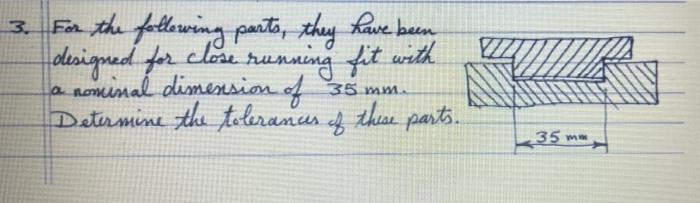 3. For the following parts, they have been
designed for close running fit with
a nominal dimension of 35 mm.
Determine the tolerances of these parts.
35 mm